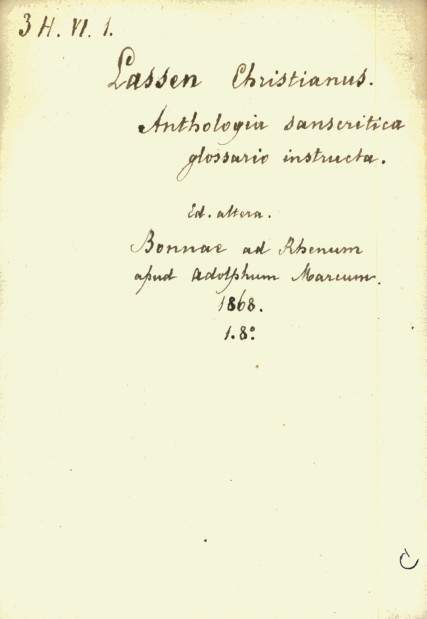 3 H. VI. 1.
Lassen Christianus.
Anthologia sanscritica
glossario instructa.
Ed. altera.
Bonnae ad Rhenum
apud Adolphum Marcum.
1868.
1.8°